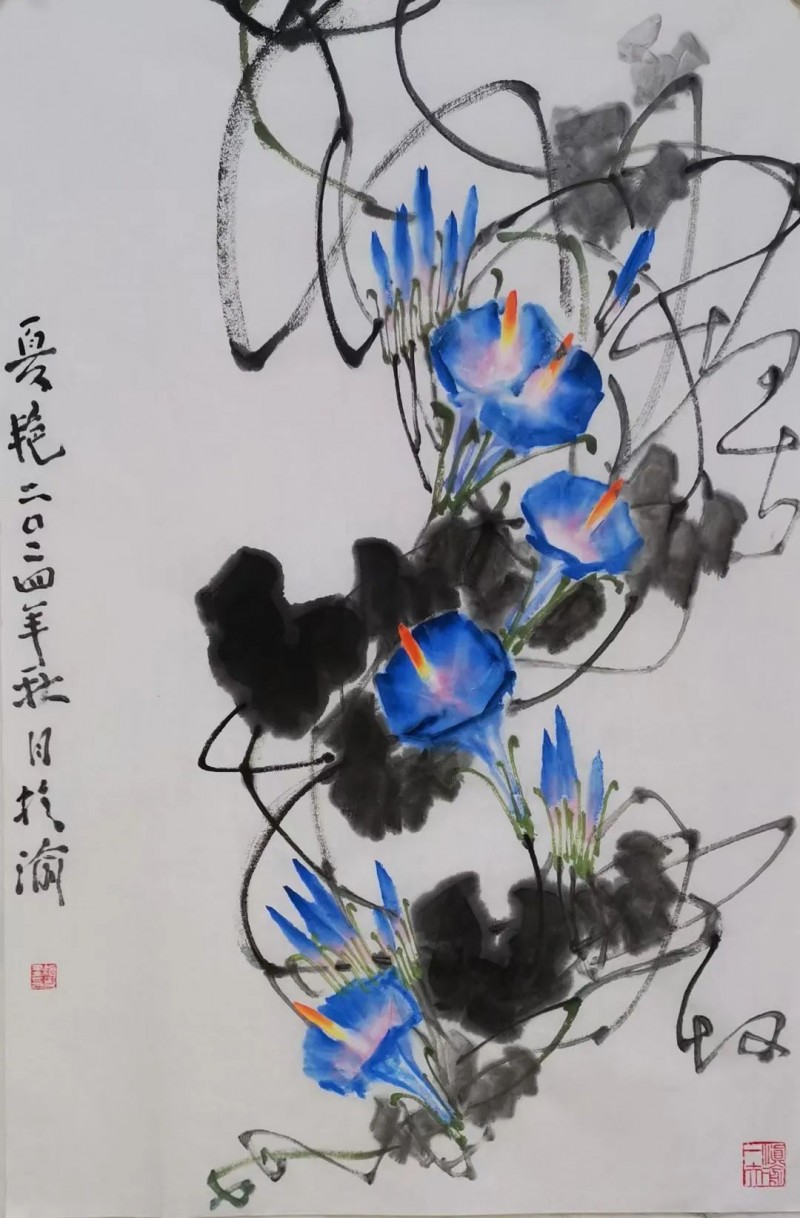 夏艳二〇二四年秋月於渝